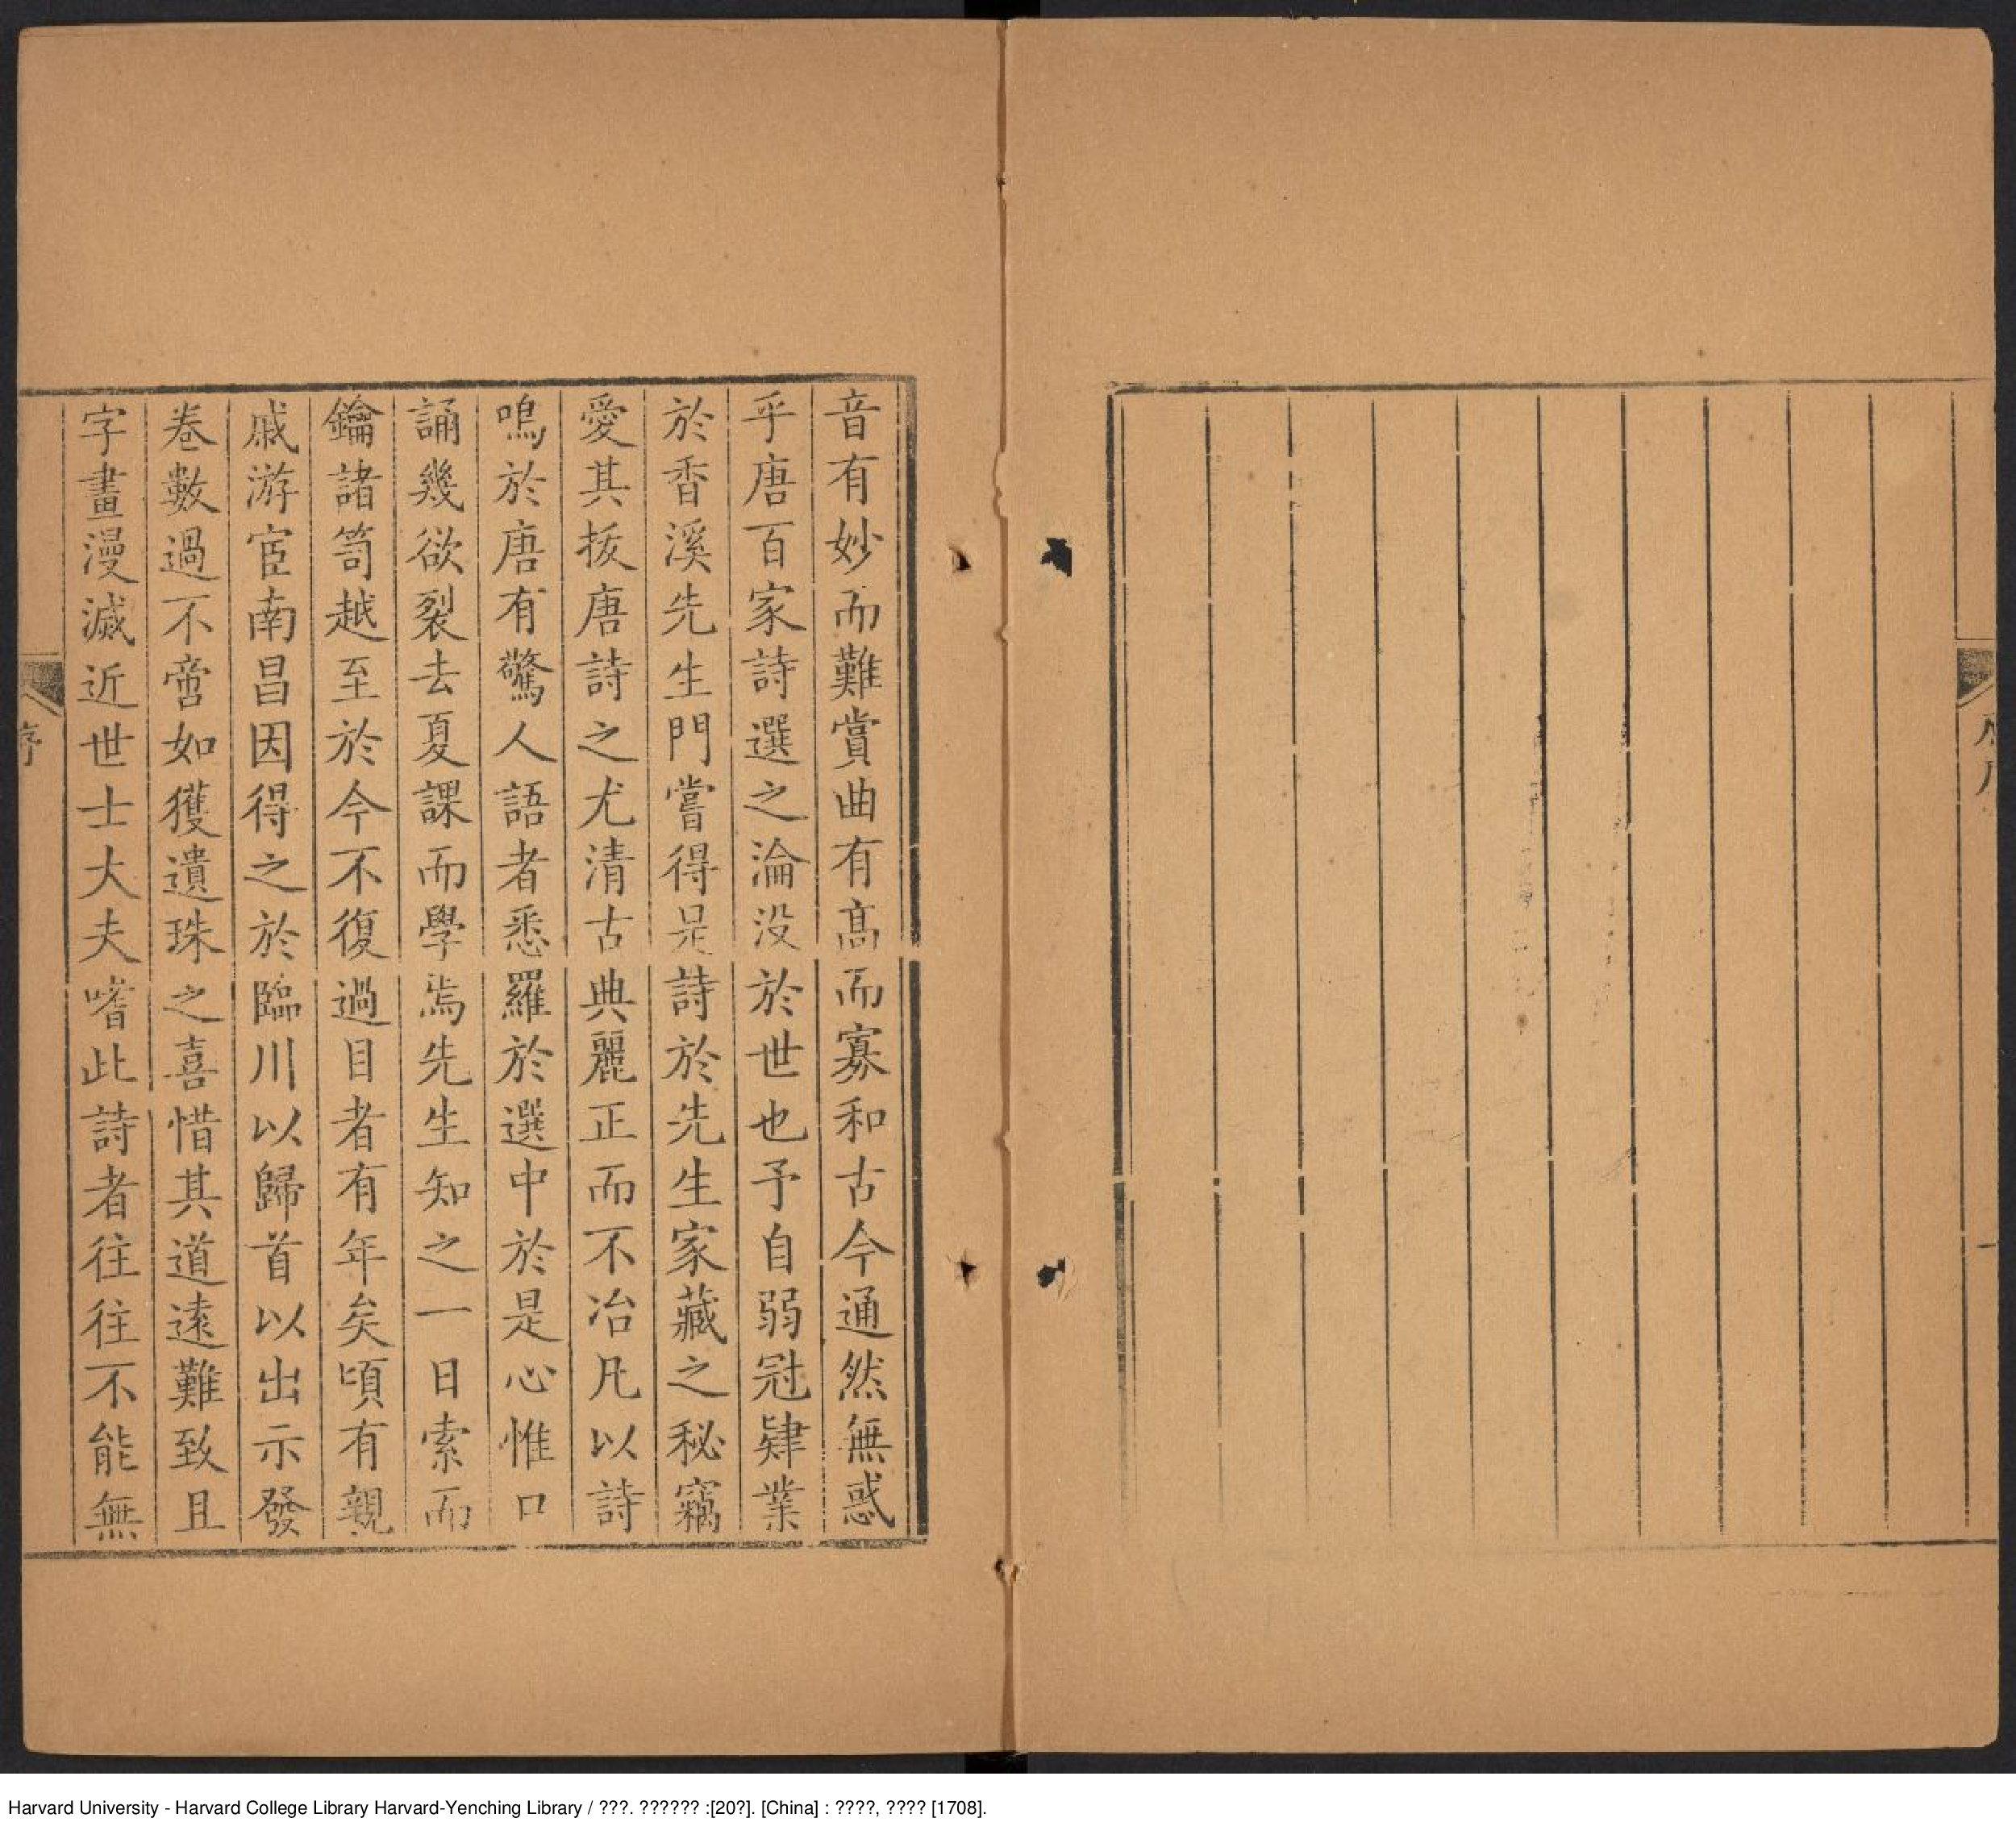 音有妙而難賞曲有高而寡和古今通然無惑
乎唐百家詩選之淪没於世也予自弱冠肄業
於香溪先生門嘗得是詩於先生家藏之秘竊
愛其拔唐詩之尤清古典麗正而不冶凡以詩
鳴於唐有驚人語者悉羅於選中於是心惟口
誦幾欲裂去夏課而學焉先生知之一日索而
鑰諸笥越至於今不復過目者有年矣頃有親
戚游宦南昌因得之於臨川以歸首以出示發
卷數過不啻如獲遺珠之喜惜其道遠難致且
字畫漫滅近世士大夫嗜此詩者往往不能無
序
Harvard University - Harvard College Library Harvard-Yenching Library / ???. ?????? :[20?]. [China] : ????, ???? [1708].